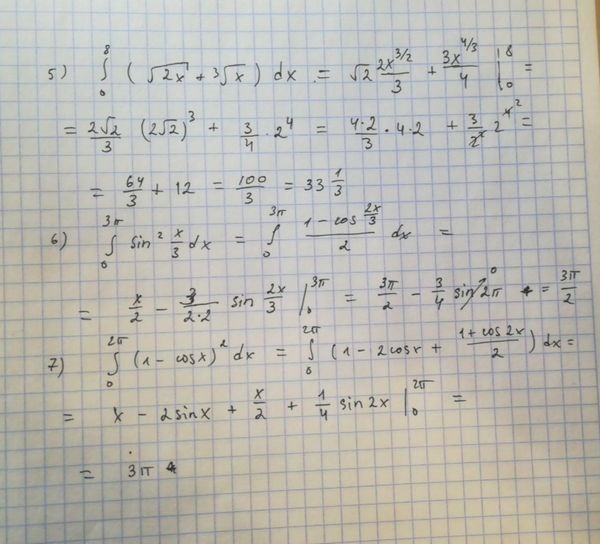 5) ∫₀⁸ (√2x + ³√x) dx = √2 2x^(3/2)/3 + 3x^(4/3)/4 |₀⁸ =
= 2√2/3 (2√2)³ + 3/4 · 2⁴ = 4·2/3 · 4·2 + 3/2² 2⁴ ² =
= 64/3 + 12 = 100/3 = 33 1/3
6) ∫₀^(3π) sin² x/3 dx = ∫₀^(3π) (1 - cos 2x/3)/2 dx =
= x/2 - 3/(2·2) sin 2x/3 |₀^(3π) = 3π/2 - 3/4 sin 2π ⁰ = 3π/2
7) ∫₀^(2π) (1 - cosx)² dx = ∫₀^(2π) (1 - 2cosx + (1 + cos2x)/2) dx =
= x - 2sinx + x/2 + 1/4 sin2x |₀^(2π) =
= 3π